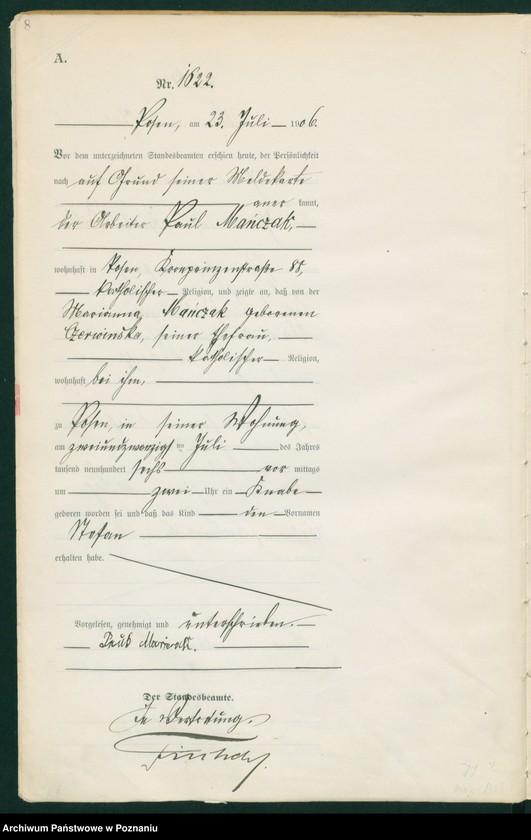 8
A.
Nr. 1622.
Posen, am 23. Juli 1906.
Vor dem unterzeichneten Standesbeamten erschien heute, der Persönlichkeit
nach auf Grund seiner Meldekarte
aner kannt,
der Arbeiter Paul Mańczak,
wohnhaft in Posen, Kronprinzenstraße 88,
katholischer Religion, und zeigte an, daß von der
Marianna Mańczak geborenen
Czerwinska, seiner Ehefrau,
katholischer Religion,
wohnhaft bei ihm,
zu Posen, in seiner Wohnung,
am zweiundzwanzigsten Juli des Jahres
tausend neunhundert sechs vor mittags
um zwei Uhr ein Knabe
geboren worden sei und daß das Kind den Vornamen
Stefan
erhalten habe.
Vorgelesen, genehmigt und unterschrieben.
Der Standesbeamte.
In Vertretung.
Archiwum Państwowe w Poznaniu